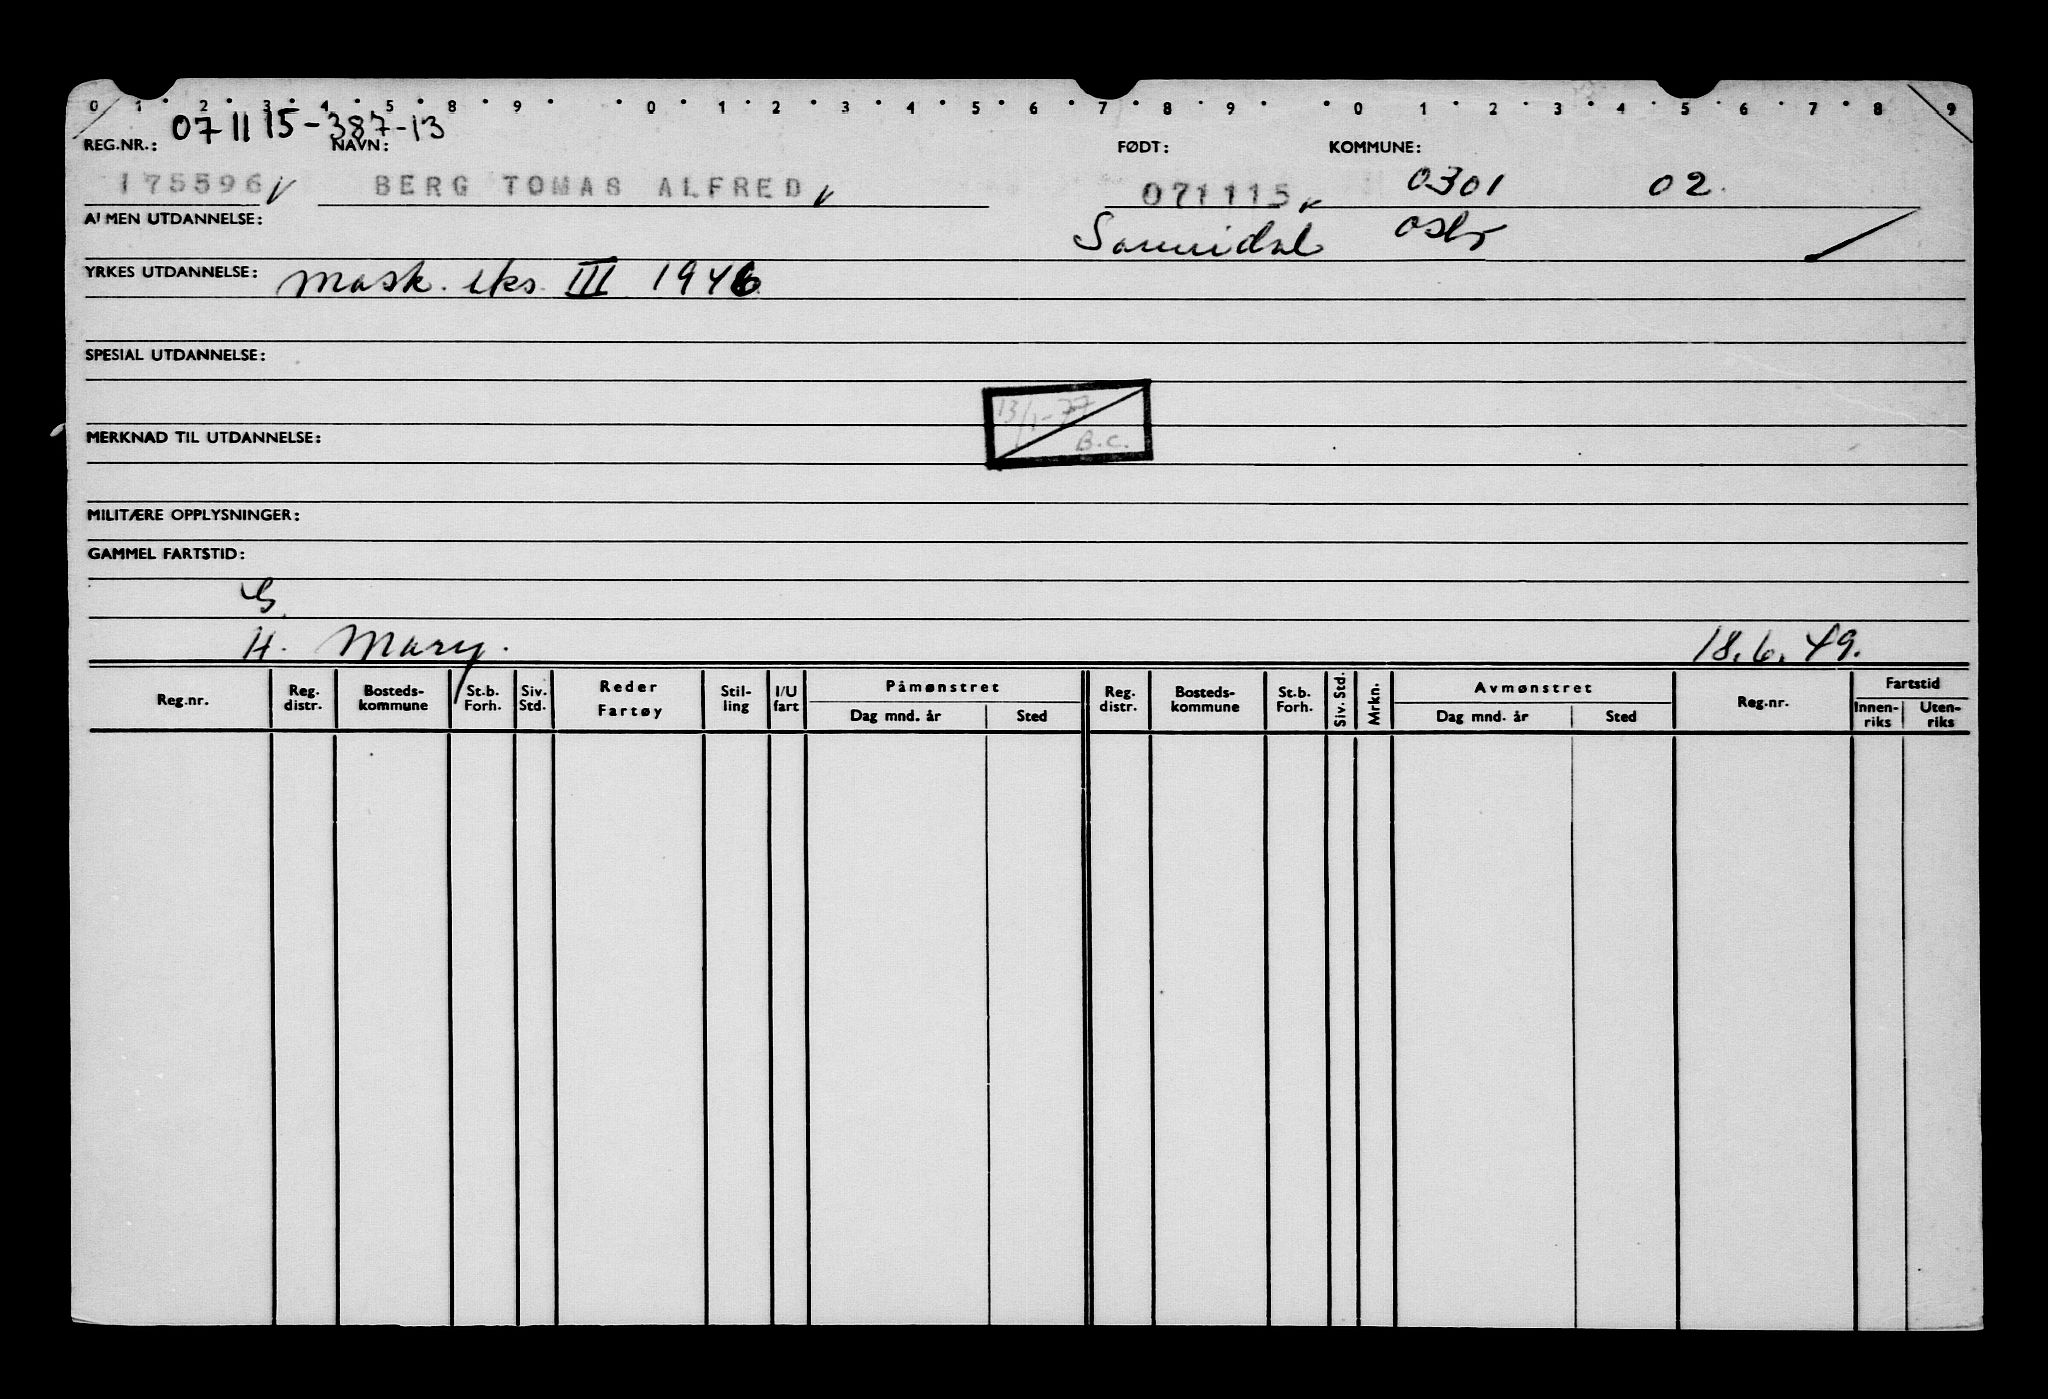 0 1 2 3 4 5 8 9 0 1 2 3 4 5 6 7 8 9 0 1 2 3 4 5 6 7 8 9
071115-387-13
REG.NR.: NAVN: FØDT: KOMMUNE:
175596 BERG TOMAS ALFRED 071115 0301 02
ALMEN UTDANNELSE: Sannidal Oslo
YRKES UTDANNELSE: Mask. eks. III 1946
SPESIAL UTDANNELSE:
13/1-77
B.C.
MERKNAD TIL UTDANNELSE:
MILITÆRE OPPLYSNINGER:
GAMMEL FARTSTID:
G.
H. Mary. 18.6.49.
Reg.nr. Reg. distr. Bosteds-kommune St.b. Forh. Siv. Std. Reder Fartøy Stil-ling I/U fart Påmønstret Dag mnd. år Sted Reg. distr. Bosteds-kommune St.b. Forh. Siv. Std. Mrkn. Avmønstret Dag mnd. år Sted Reg.nr. Fartstid Innen-riks Uten-riks